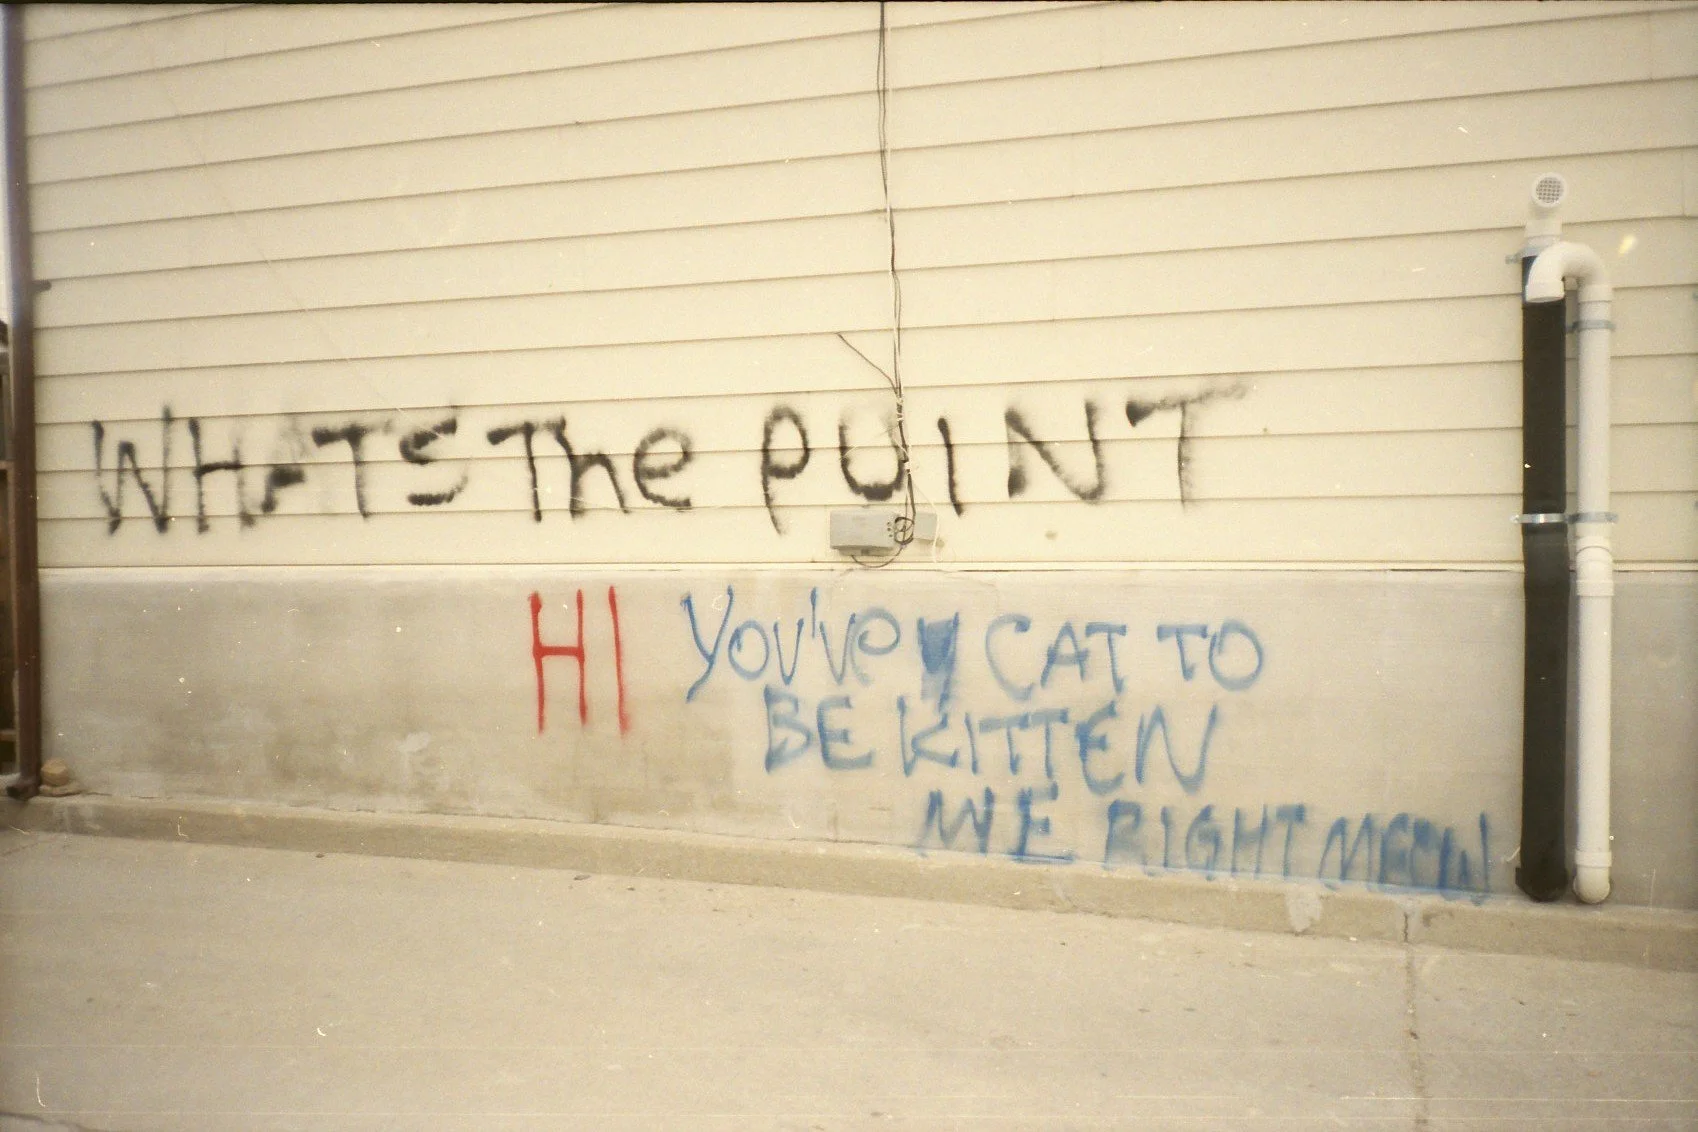 WHATS The POINT
HI
YOU've CAT TO
BE KITTEN
ME RIGHT MEOW